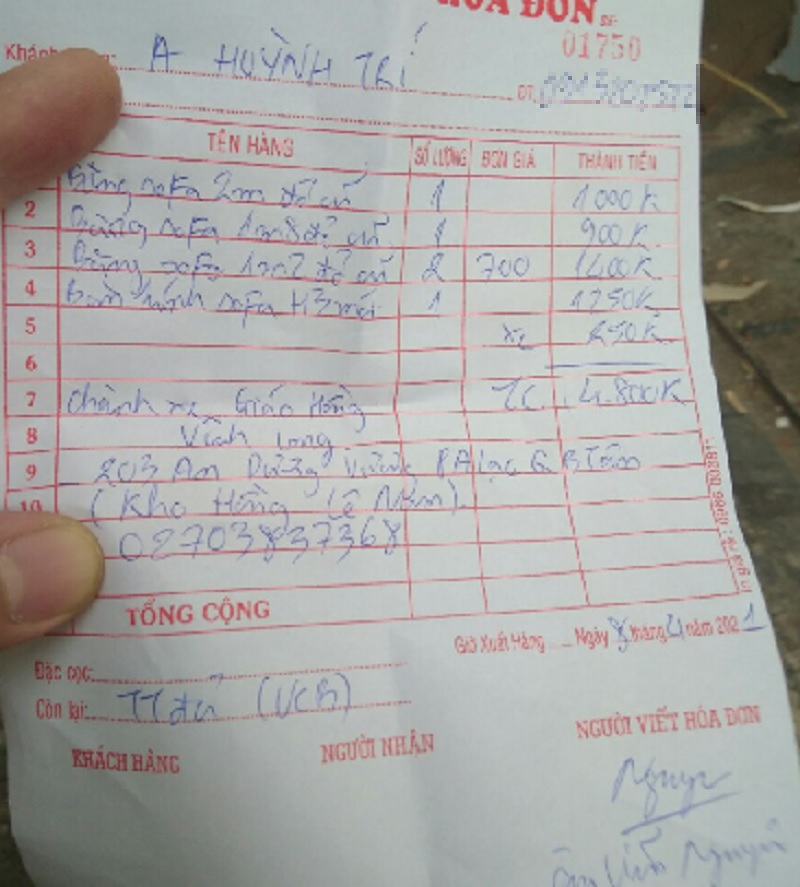 HÓA ĐƠN Số:
01750
A HUỲNH TRÍ
ĐT:
TÊN HÀNG SỐ LƯỢNG ĐƠN GIÁ THÀNH TIỀN
Băng sofa 2m đỏ cũ 1 1000K
2 Băng sofa 1m8 đỏ cũ 1 900K
3 Băng sofa 1m2 đỏ cũ 2 700 1400K
4 Bàn kính sofa mới 1 1250K
5 xe 250K
6
7 Chành xe Giáo Hồng TC 4.800K
8 Vĩnh Long
9 203 An Dương Vương P An Lạc Q B Tân
10 (Kho Hồng Lê).
02703837368
TỔNG CỘNG
Giờ Xuất Hàng Ngày 8 tháng 4 năm 2021
Đặc cọc:
Còn lại: TT đủ (VCB)
KHÁCH HÀNG NGƯỜI NHẬN NGƯỜI VIẾT HÓA ĐƠN
Nguyên
Nguyên